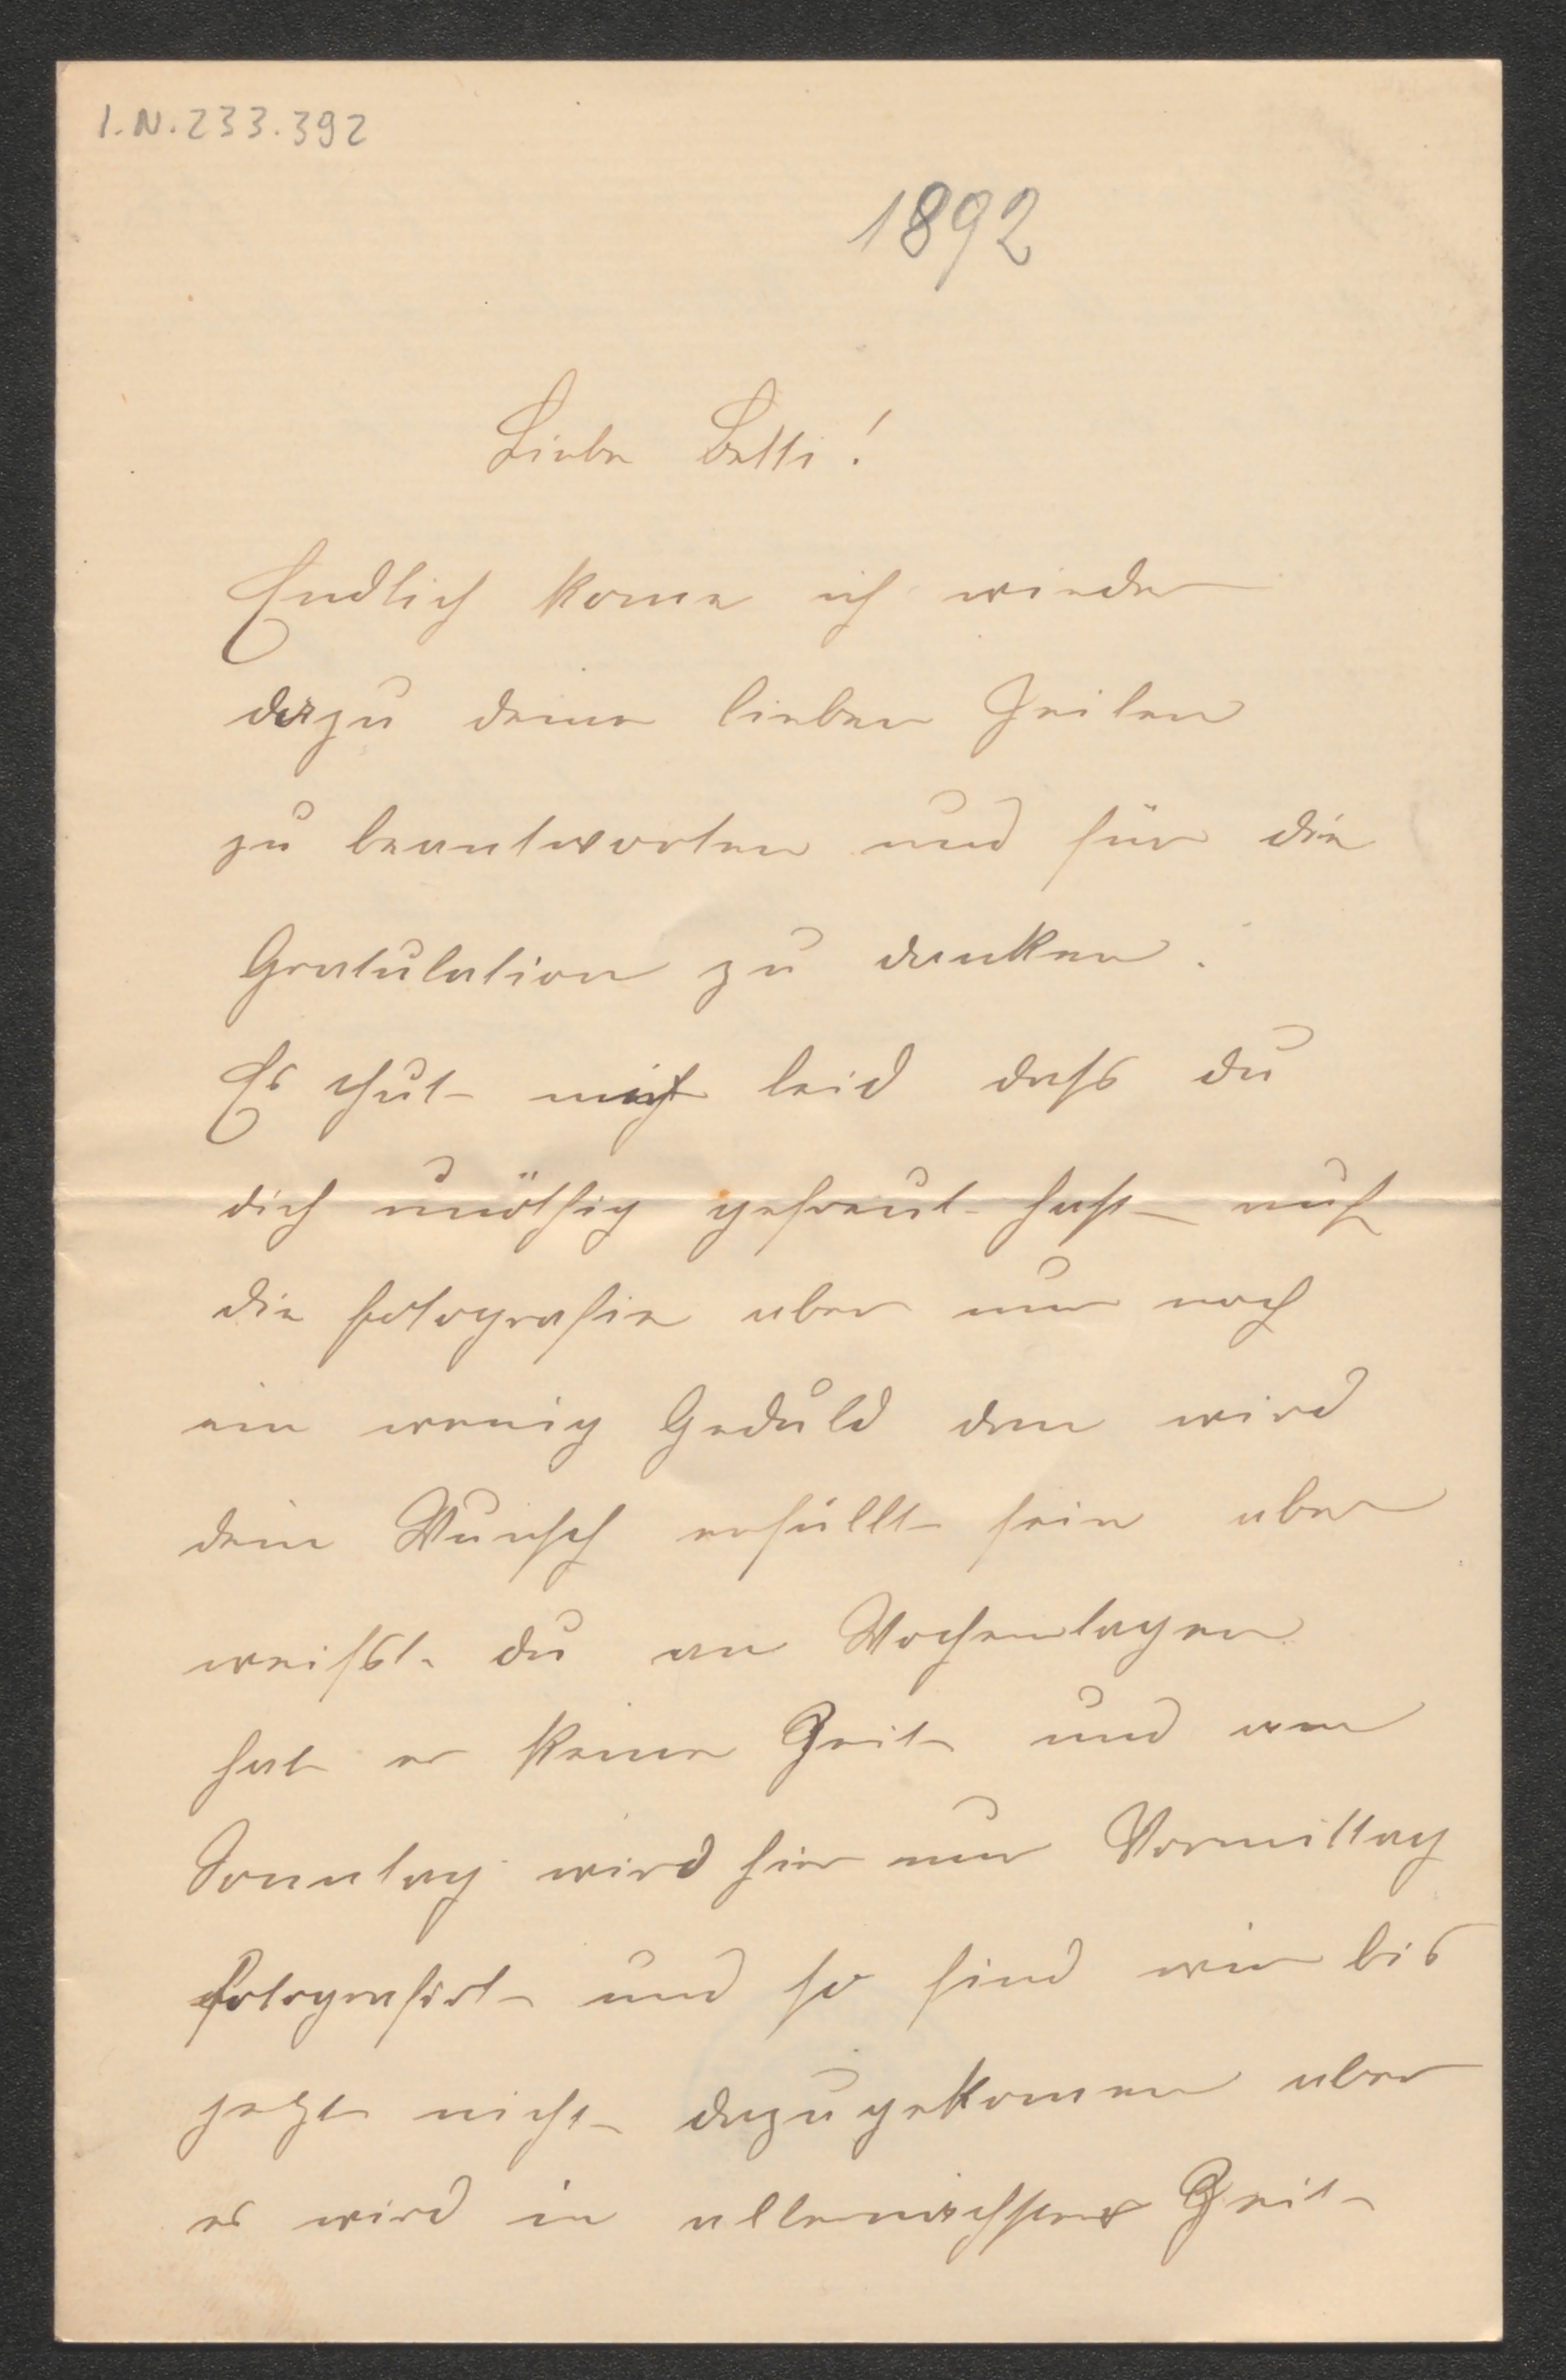 I.N.233.392
1892
Liebe Betti!
Endlich kome ich wieder
dazu deine lieben Zeilen
zu beantworten und für die
Gratulation zu danken.
Es thut mich leid dass du
dich unöthig gefreut hast auf
die fotografie aber nur noch
ein wenig Geduld dan wird
dein Wunsch erfüllt sein aber
weisst du an Wochentagen
hat er keine Zeit und am
Sonntag wird hier nur Vormittag
fotografirt und so sind wir bis
jetzt nicht dazugekomen aber
es wird in allernächster Zeit